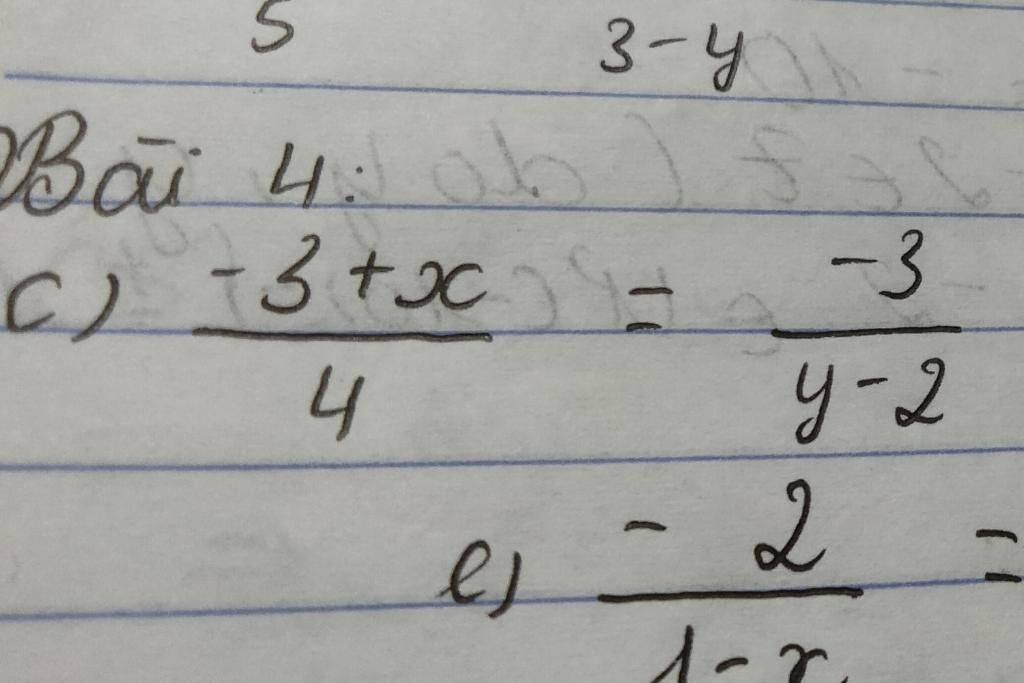 5 3-y
Bài 4:
c) -3+x / 4 = -3 / y-2
e) -2 / 1-x =